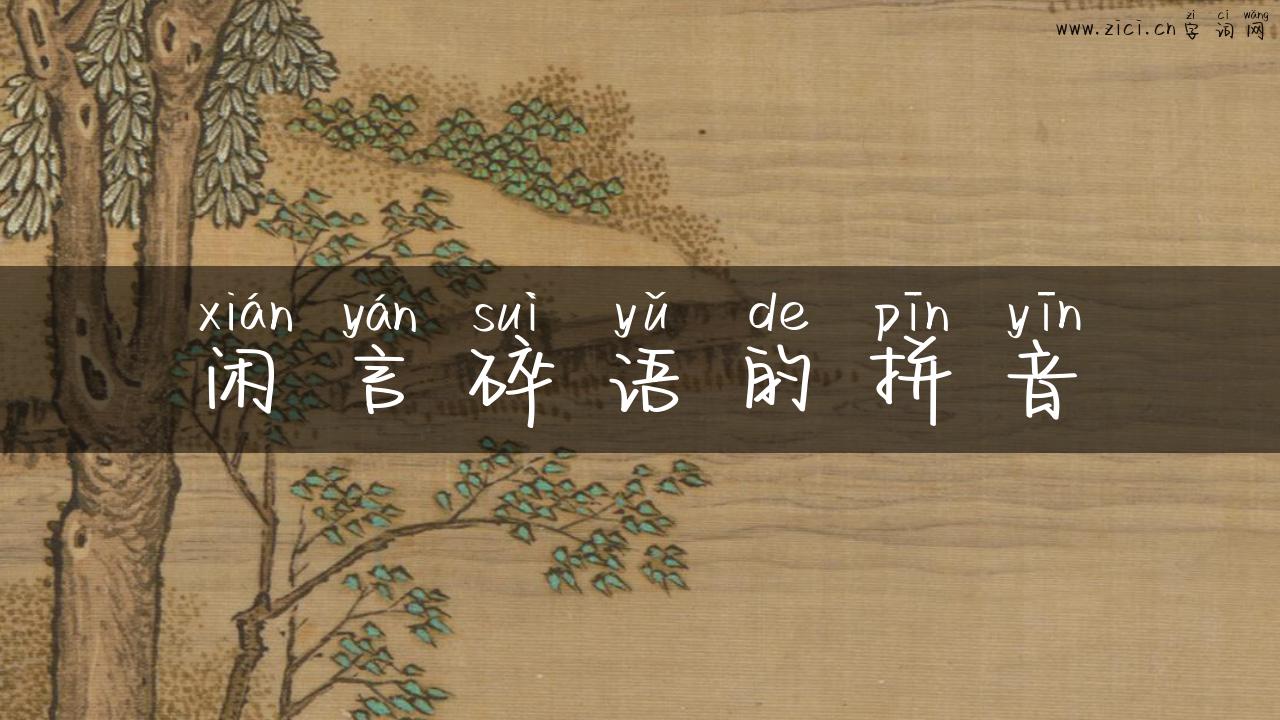 zì cí wǎng
www.zici.cn 字词网
xián yán suì yǔ de pīn yīn
闲言碎语的拼音